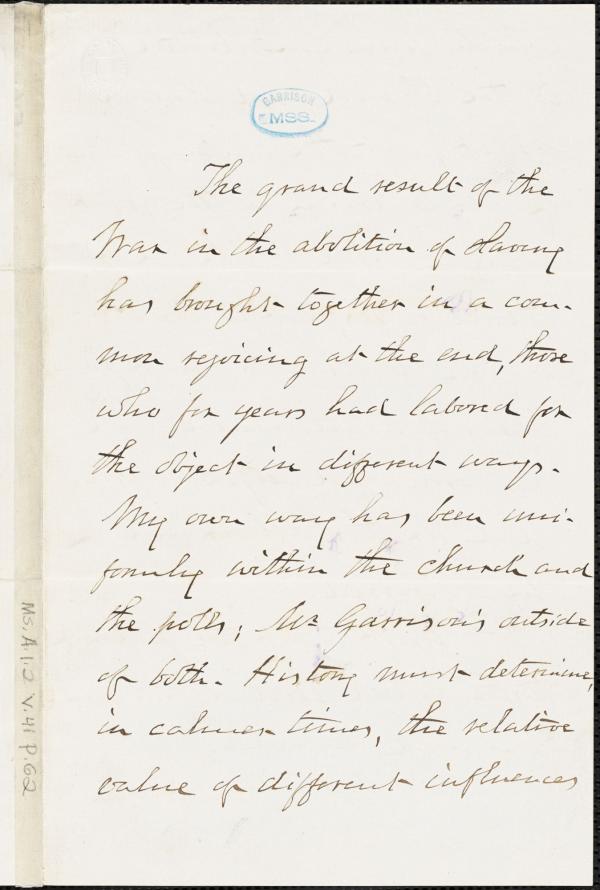 GARRISON
MSS.
The grand result of the
War in the abolition of Slavery
has brought together in a com-
mon rejoicing at the end, those
who for years had labored for
the object in different ways.
My own way has been uni-
formly within the church and
the polls; Mr Garrison's outside
of both. History must determine,
in calmer times, the relative
value of different influences
MS. A.1.2 V.41 P.62